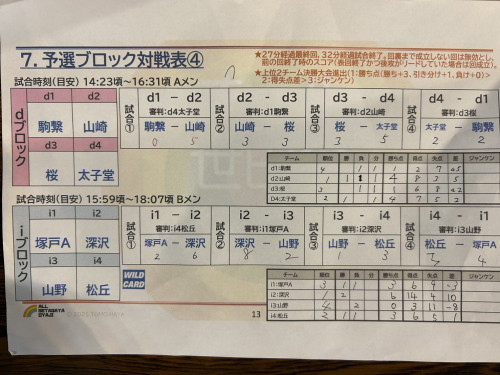 7. 予選ブロック対戦表④
★27分経過最終回, 32分試合終了。回裏まで成立しない回は無効とし、
前の回終了時のスコア(表回終了かつ後攻がリードしていた場合は回成立)。
★上位2チーム決勝大会進出(1:勝ち点(勝ち+3, 引き分け+1, 負け+0)>
2:得失点差>3:ジャンケン)
試合時刻(目安) 14:23頃~16:31頃 Aメン
dブロック
d1 d2
駒繋 山崎
d3 d4
桜 太子堂
試合① d1 - d2
審判:d4太子堂
駒繋 - 山崎
0 5
試合② d2 - d3
審判:d1駒繋
山崎 - 桜
3 3
試合③ d3 - d4
審判:d2山崎
桜 - 太子堂
3 5
試合④ d4 - d1
審判:d3桜
太子堂 - 駒繋
2 2
チーム 順位 勝 負 分 勝ち点 得点 失点 差 ジャンケン
d1:駒繋 4 1 1 1 2 7
d2:山崎 1 1 1 4 8 3 5
d3:桜 3 1 1 1 6 8
D4:太子堂 2 1 1 4 7 5 2
試合時刻(目安) 15:59頃~18:07頃 Bメン
iブロック
i1 i2
塚戸A 深沢
i3 i4
山野 松丘
試合① i1 - i2
審判:i4松丘
塚戸A - 深沢
2 6
試合② i2 - i3
審判:i1塚戸A
深沢 - 山野
8 2
試合③ i3 - i4
審判:i2深沢
山野 - 松丘
1 3
試合④ i4 - i1
審判:i3山野
松丘 - 塚戸A
3 4
チーム 順位 勝 負 分 勝ち点 得点 失点 差 ジャンケン
i1:塚戸A 3 1 1 3 6 9 -3
i2:深沢 1 2 6 14 4 10
i3:山野 4 2 0 3 11 -8
i4:松丘 2 1 1 3 6 5 1
WILD
CARD
ALL
SETAGAYA
OYAJI
13